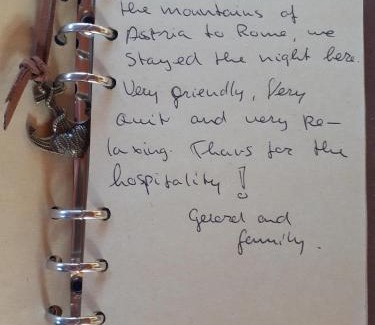 the mountains of
Astria to Rome, we
stayed the night here.
Very friendly, Very
quit and very Re-
laxing. Thavs for the
hospitality!
Gerard and
family.